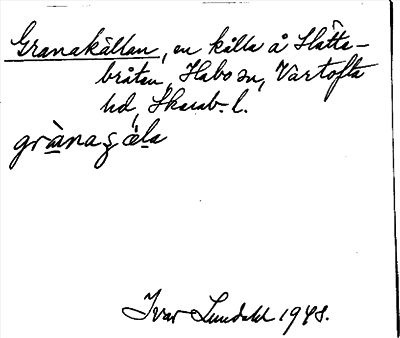 Granakällan, en källa å Slätte-
bråten, Habo sn, Vartofta
hd, Skarab. l.
gràna ʂäla
Ivar Lundahl 1948.